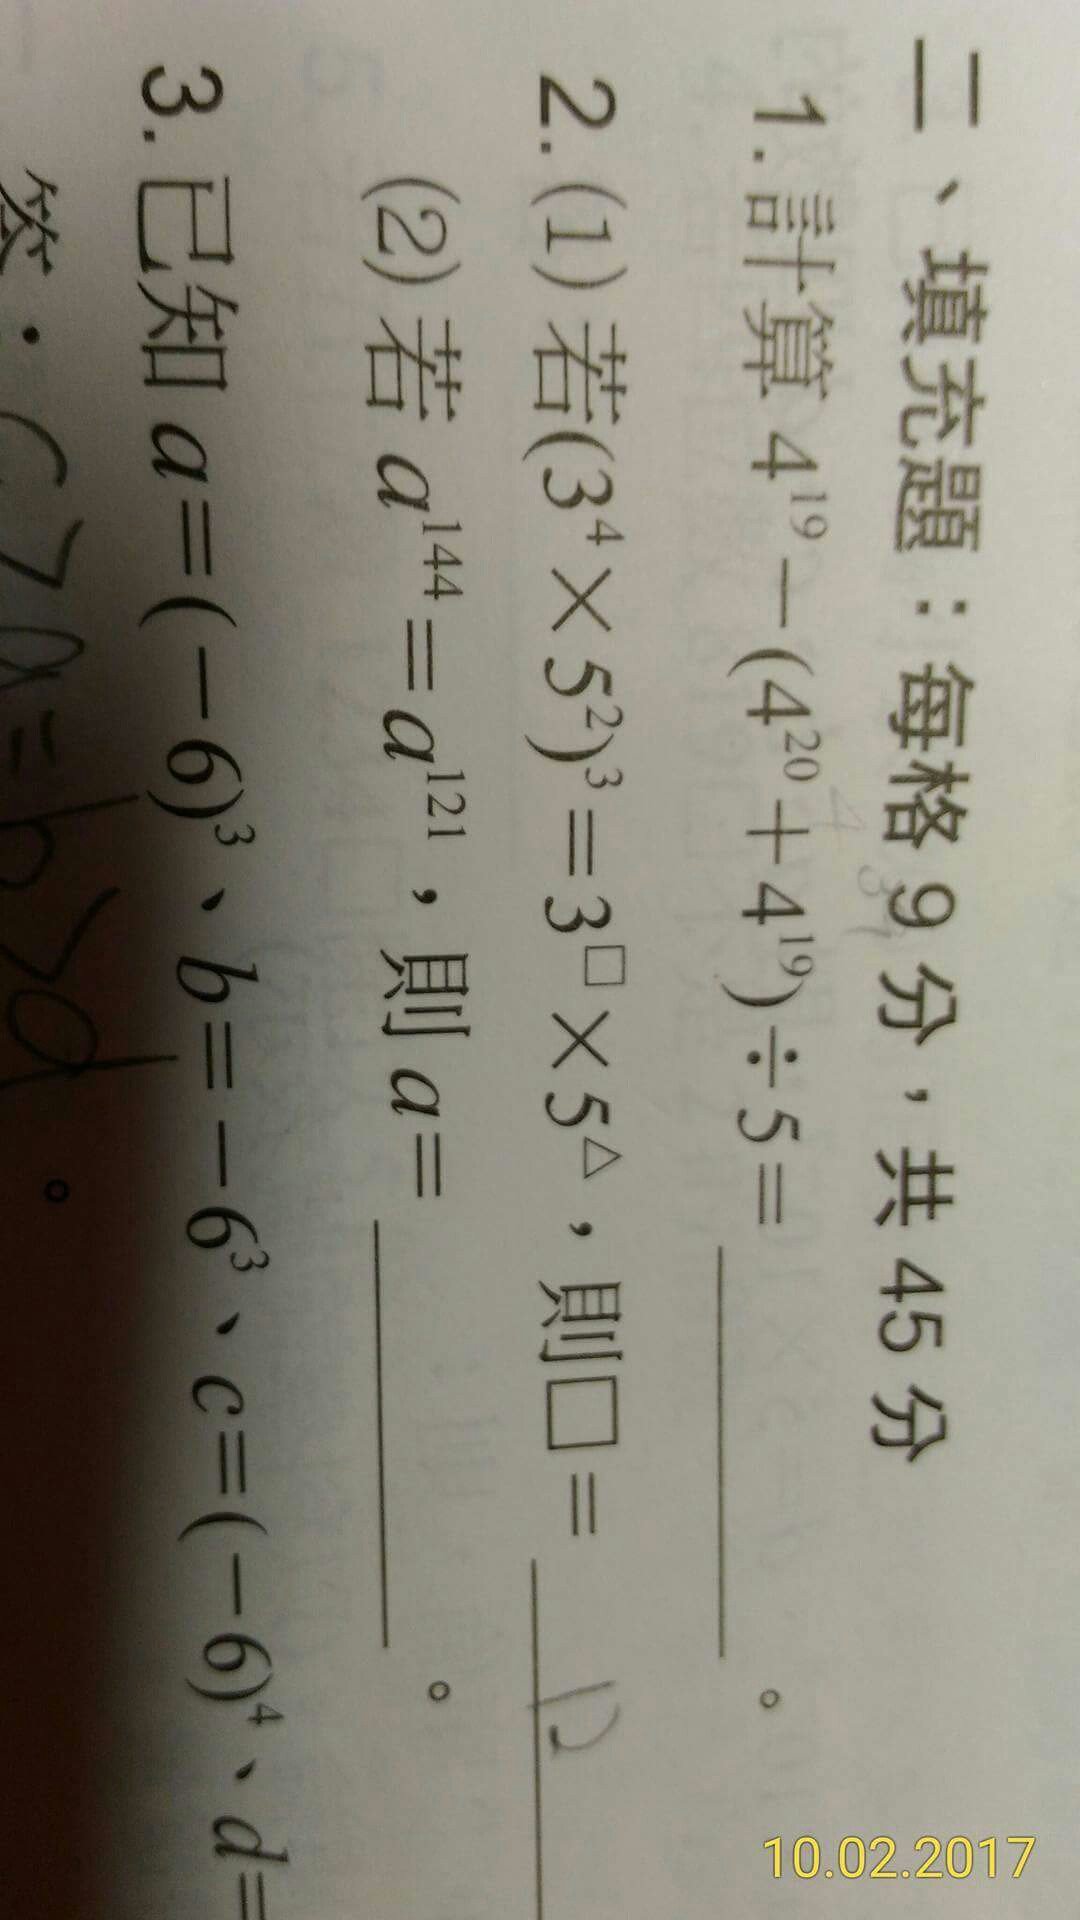 二、填充題：每格 9 分，共 45 分
1. 計算 4¹⁹－(4²⁰＋4¹⁹)÷5＝＿＿＿＿。
2. (1) 若(3⁴×5²)³＝3□×5△，則□＝ 12
(2) 若 a¹⁴⁴＝a¹²¹，則 a＝＿＿＿＿。
3. 已知 a＝(－6)³、b＝－6³、c＝(－6)⁴、d＝
答：c>a=b>d。
10.02.2017